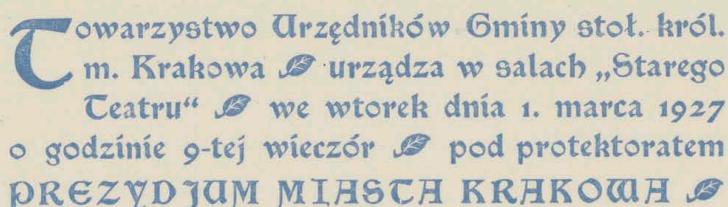 Towarzystwo Urzędników Gminy stoł. król.
m. Krakowa urządza w salach „Starego
Teatru“ we wtorek dnia 1. marca 1927
o godzinie 9-tej wieczór pod protektoratem
PREZYDJUM MIASTA KRAKOWA